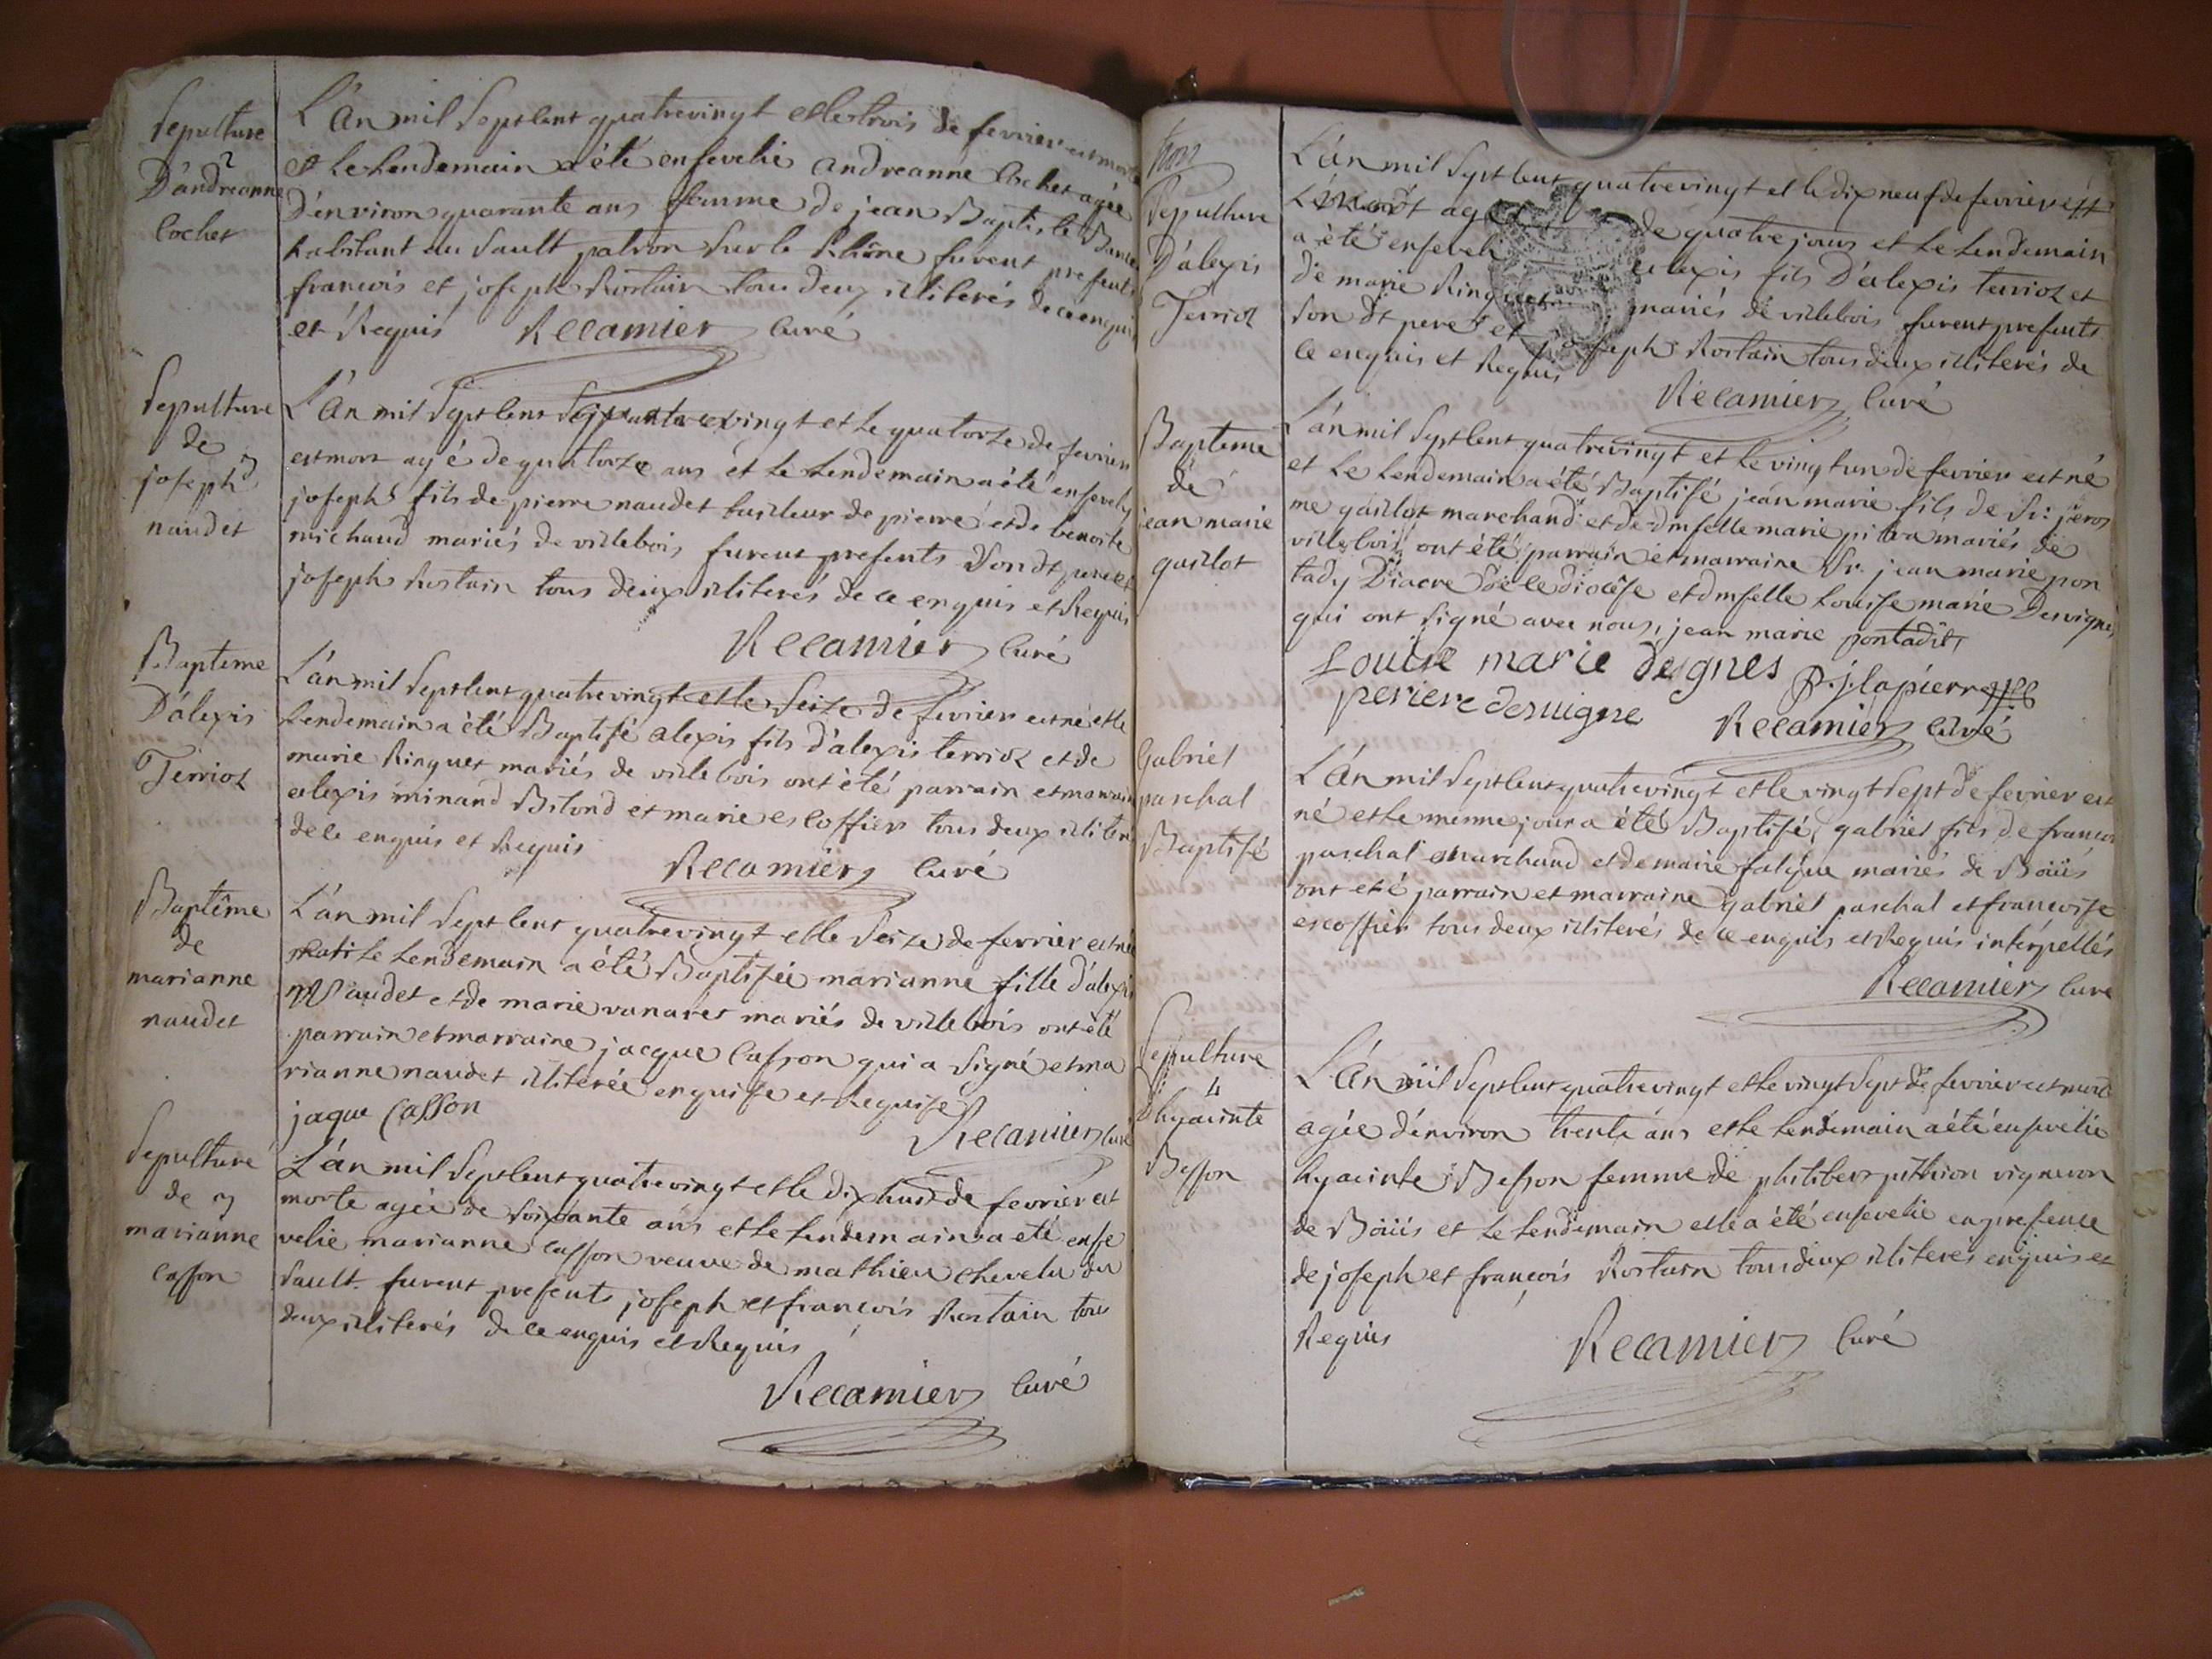 Sepulture
D'andreanne
Cochet
L'An mil Sept Cent quatrevingt et le trois de fevrier est morte
et le Lendemain a été ensevelie andreanne Cochet agée
D'environ quarante ans femme de jean Baptiste
habitant au Sault patron sur le Rhône furent presents
francois et joseph Rostain tous deux illiterés de ce enquis
et Requis Recamier Curé
Sepulture
de
joseph
naudet
L'An mil Sept Cent quatrevingt et le quatorze de fevrier
est mort agé de quatorze ans et le Lendemain a été ensevely
joseph fils de pierre naudet tailleur de pierre et de benoite
michaud mariés de villebois furent presents Son dt pere et
joseph Rostain tous deux illiterés de ce enquis et Requis
Recamier Curé
Bapteme
D'alexis
Terriot
L'an mil Sept Cent quatrevingt et le Seize de fevrier est né et le
Lendemain a été Baptisé alexis fils d'alexis terriot et de
marie Ringuet mariés de villebois ont été parrain et marraine
alexis minand Bitond et marie escoffier tous deux illiterés
de ce enquis et Requis
Recamier Curé
Baptême
de
marianne
naudet
L'an mil Sept Cent quatrevingt et le Seize de fevrier est née
et le Lendemain a été Baptisée marianne fille d'alexis
Naudet et de marie vanaret mariés de villebois ont été
parrain et marraine jacque Casson qui a signé et ma
rianne naudet illiterée enquise et Requise
jaque Casson
Recamier Curé
Sepulture
de
marianne
Casson
L'an mil Sept Cent quatrevingt et le dixhuit de fevrier est
morte agée de soixante ans et le Lendemain a été ense
velie marianne Casson veuve de mathieu chevelu du
Sault furent presents joseph et francois Rostain tous
deux illiterés de ce enquis et Requis
Recamier Curé
Sepulture
D'alexis
Terriot
L'an mil Sept Cent quatrevingt et le dix neuf de fevrier est
mort agé de quatre jours et le Lendemain
a été enseveli alexis fils D'alexis terriot et
de marie Ringuet mariés de villebois furent presents
Son dt pere et joseph Rostain tous deux illiterés de
ce enquis et Requis
Recamier Curé
Bapteme
de
jean marie
guillot
L'an mil Sept Cent quatrevingt et le vingt un de fevrier est né
et le Lendemain a été Baptisé jean marie fils de Sr. jero
me guillot marchand et de dmselle marie pitra mariés de
villebois ont été parrain et marraine Sr. jean marie pon
tady Diacre de ce diocèse et dmselle Louise marie Desvignes
qui ont signé avec nous, jean marie pontadit
Louise marie desgnes p. j. lapierre
periere desvigne Recamier Curé
Gabriel
paschal
Baptisé
L'An mil Sept Cent quatrevingt et le vingt Sept de fevrier est
né et le même jour a été Baptisé gabriel fils de francois
paschal marchand et de marie falque mariés de Boüis
ont été parrain et marraine gabriel paschal et francoise
escoffier tous deux illiterés de ce enquis et Requis interpellés
Recamier Curé
Sepulture
4
d'hyacinte
Besson
L'An mil Sept Cent quatrevingt et le vingt Sept de fevrier est morte
agée d'environ trente ans et le Lendemain a été ensevelie
hyacinte Besson femme de philibert pithion vigneron
de Boüis et le Lendemain elle a été ensevelie en presence
de joseph et francois Rostain tous deux illiterés enquis et
Requis Recamier Curé